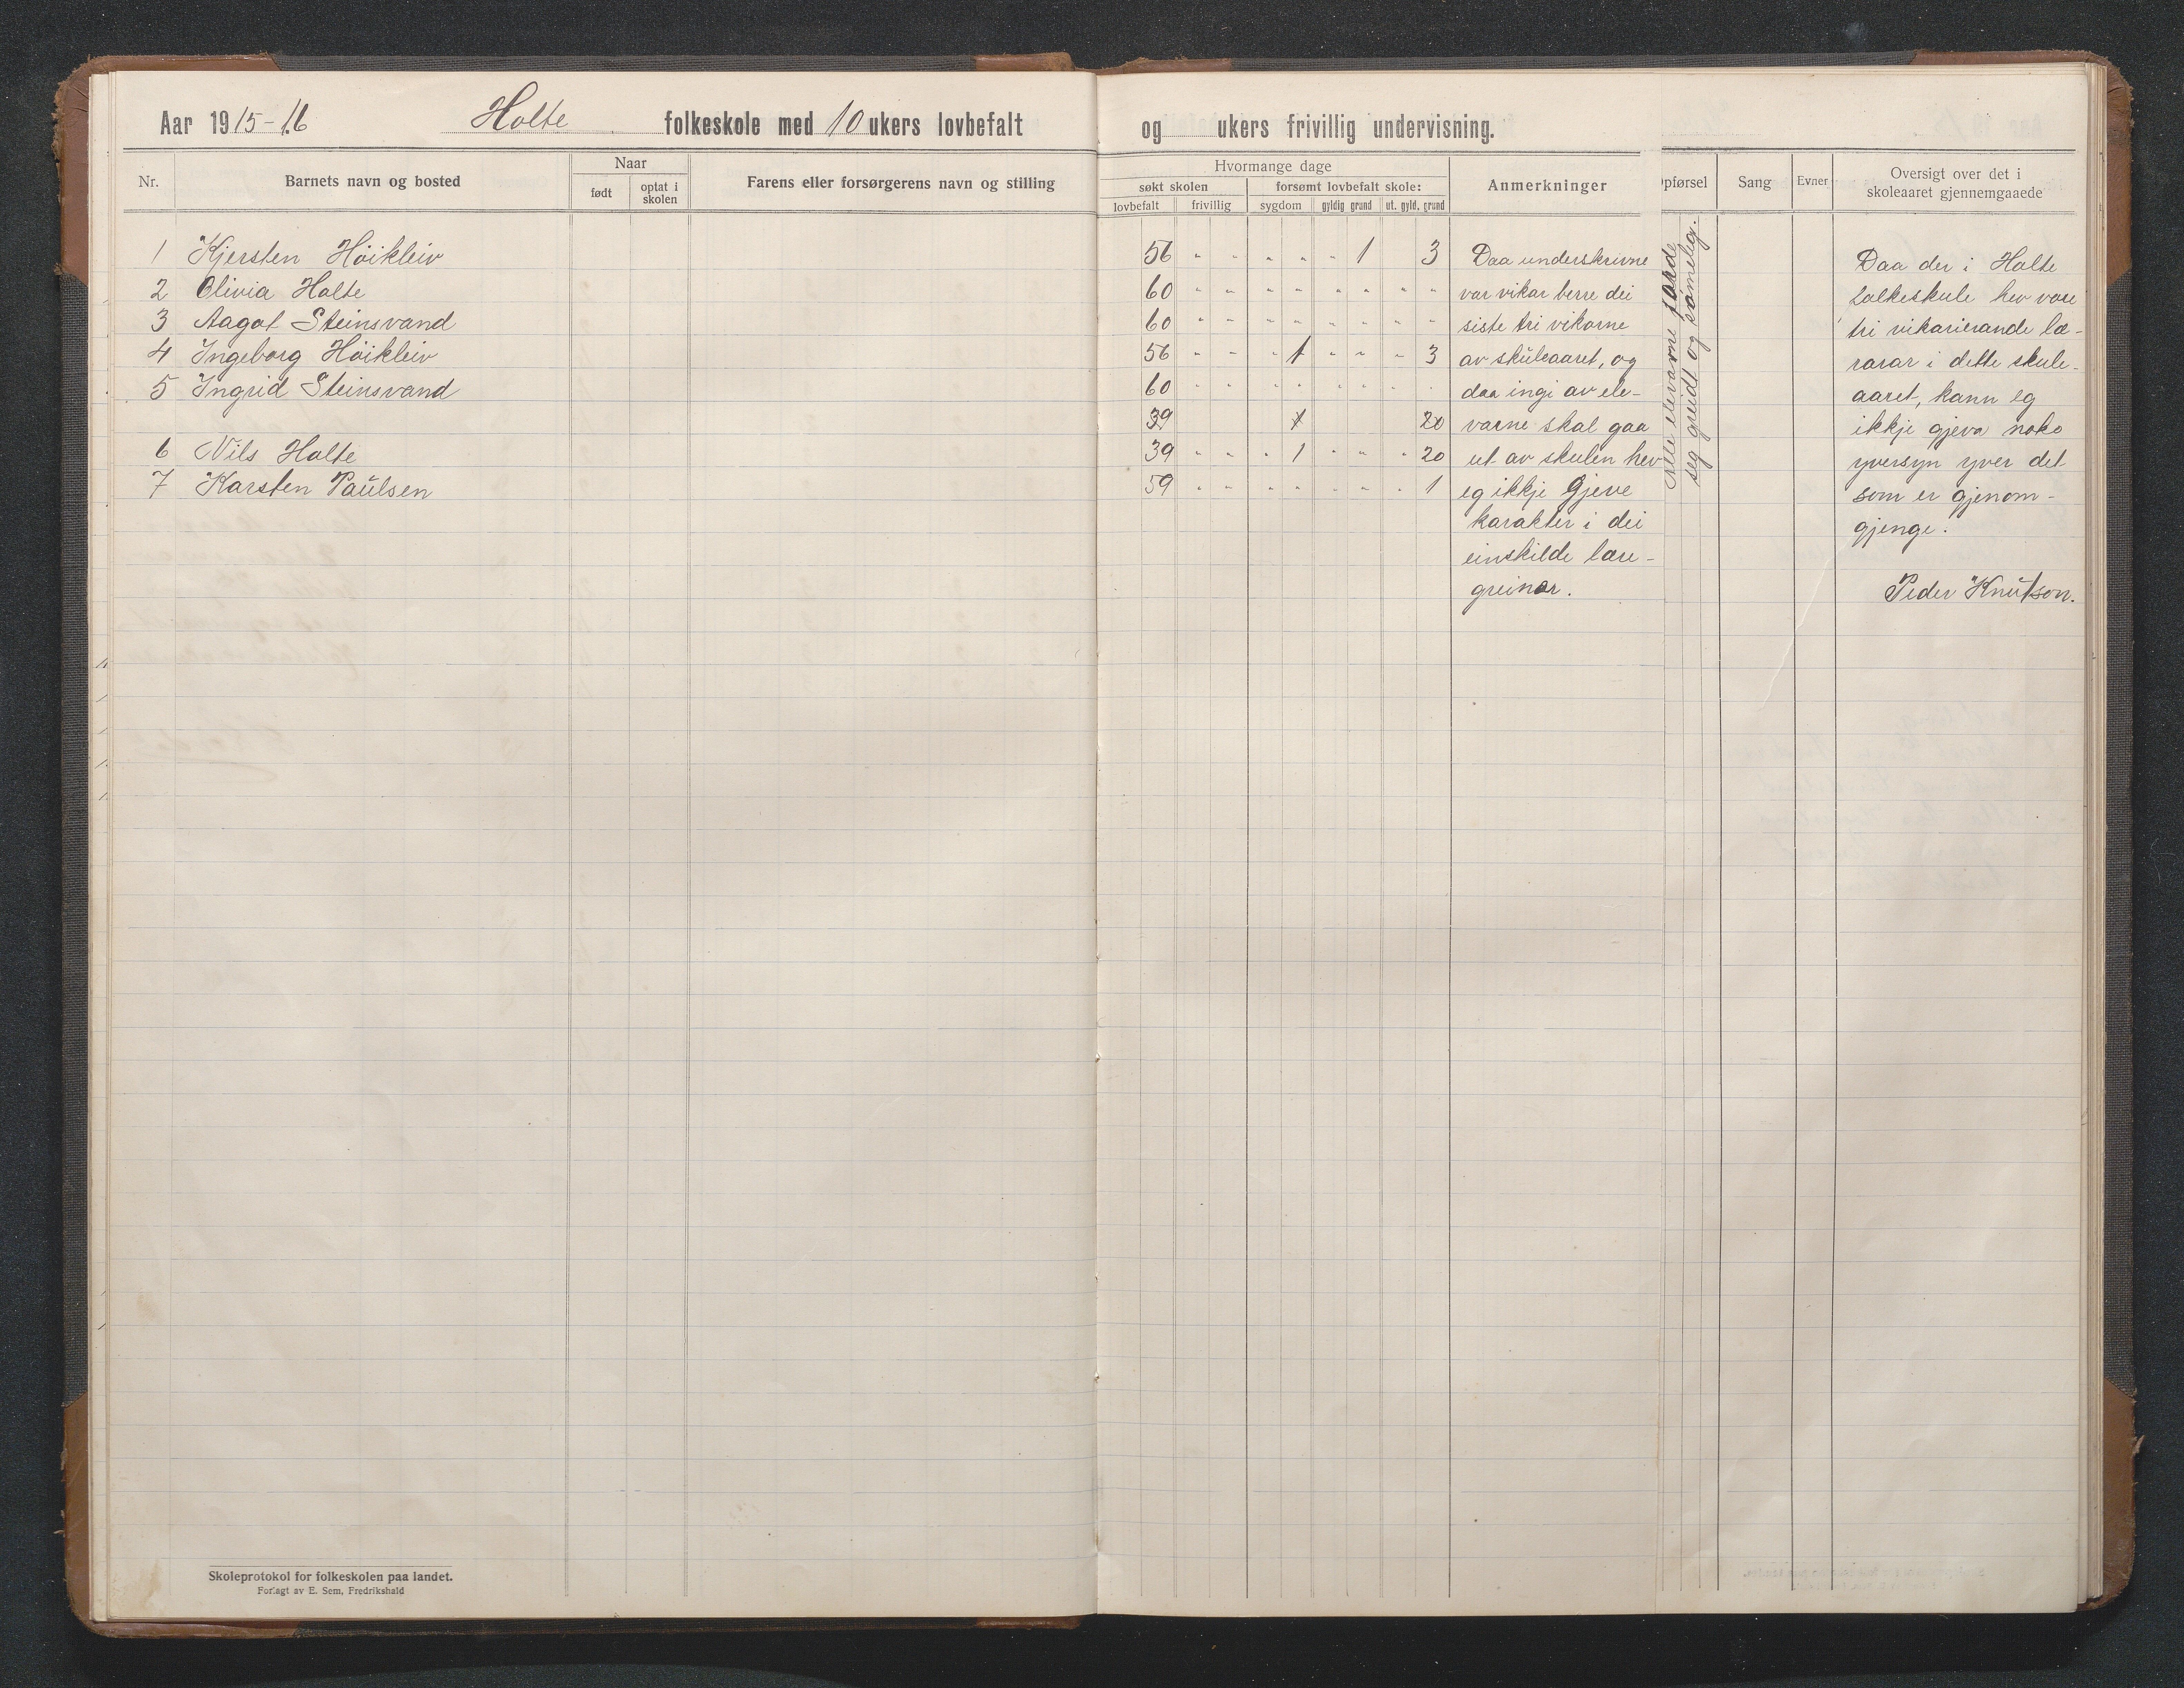 Aar 1915-16 Holte folkeskole med 10 ukers lovbefalt og ukers frivillig undervisning.
Nr. Barnets navn og bosted Naar Farens eller forsørgerens navn og stilling
født optat i skolen
Hvormange dage Anmerkninger
søkt skolen forsømt lovbefalt skole:
lovbefalt frivillig sygdom gyldig grund ut. gyld. grund
pførsel Sang Evner Oversigt over det i
skoleaaret gjennemgaaede
1 Kjersten Höikleiv 56 " " " " " 1 3
2 Olivia Holte 60 " " " " " " " "
3 Aagot Steinsvand 60 " " " " " " " "
4 Ingeborg Höikleiv 56 " " " 1 " " " 3
5 Ingrid Steinsvand 60 " " " " " " " "
39 1 20
6 Nils Holte 39 " " " 1 " " " 20
7 Karsten Paulsen 59 " " " " " " " 1
Daa underskrivne
var vikar berre dei
siste tri vikorne
av skuleaaret, og
daa ingi av ele-
varne skal gaa
ut av skulen hev
eg ikkje gjeve
karakter i dei
einskilde lære-
greinar.
Alle elevarne förde
seg greidt og sömeleg.
Daa der i Holte
folkeskule hev vore
tri vikarierande læ-
rarar i dette skule-
aaret, kann eg
ikkje gjeva noko
yversyn yver det
som er gjenom-
gjenge.
Peder Knutson.
Skoleprotokol for folkeskolen paa landet.
Forlagt av E. Sem, Fredrikshald